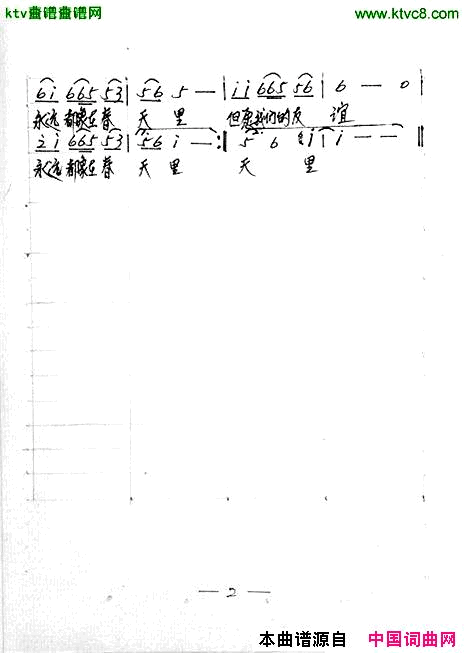 ktv曲谱曲谱网
www.ktvc8.com
6i 665 53 | 56 5 — | ii 665 56 | 6 — 0 |
永远都象在春 天 里 但愿我们的友 谊
2i 665 53 | 56 i — :‖ 5 6 i | i — — ‖
永远都象在春 天 里 天 里
— 2 —
本曲谱源自 中国词曲网